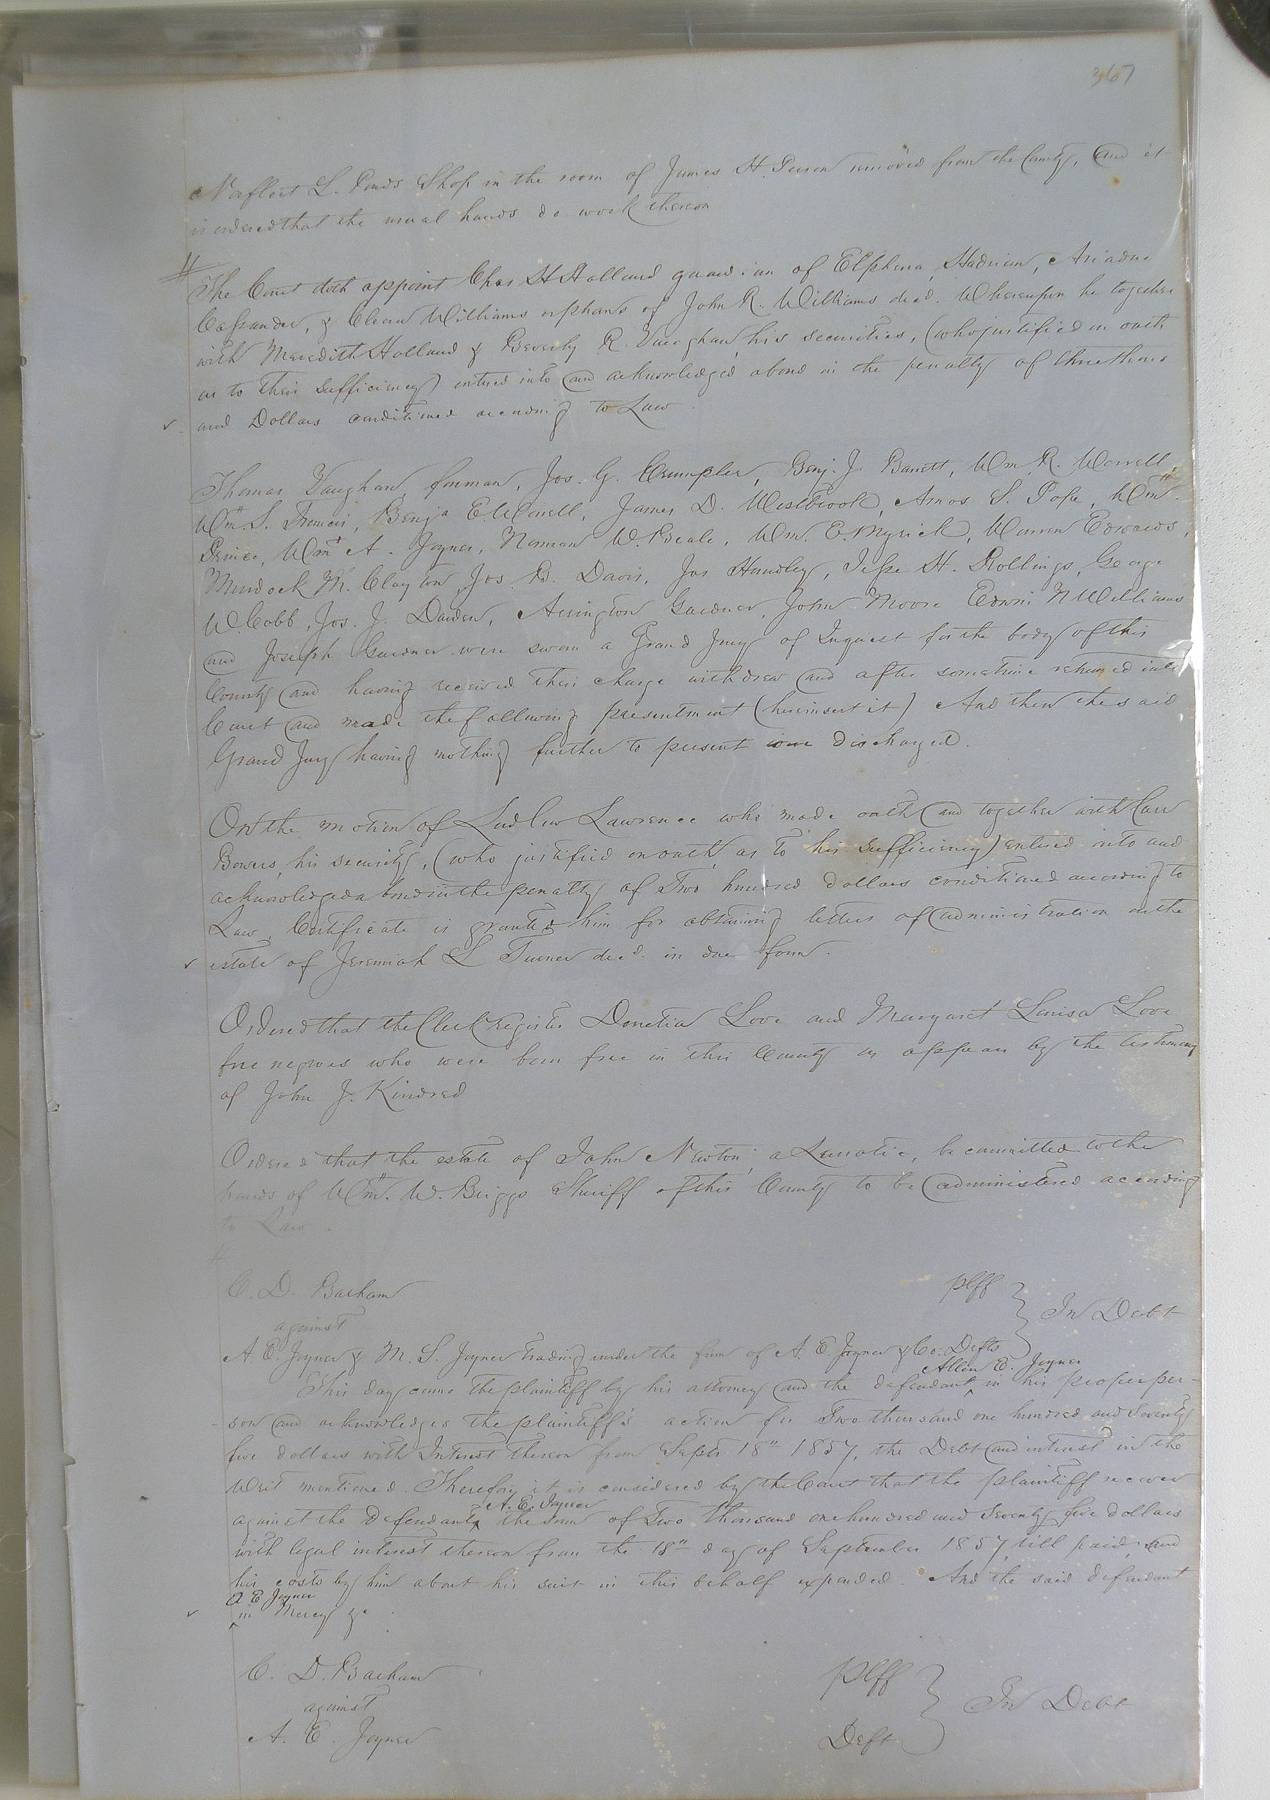 367
Naflect L. Ponds Shop in the room of James H. Person removed from the County, and it
is ordered that the usual hands do work thereon
The Court doth appoint Chas H Holland guardian of Elphena, Hadrian, Ariadne
Cassander, & Cleon Williams orphans of John R. Williams decd. Whereupon he together
with Meredith Holland & Beverly R. Vaughan, his securities, (who justified on oath
as to their sufficiency) entered into and acknowledged a bond in the penalty of three thous
and Dollars conditioned according to Law.
Thomas Vaughan foreman, Jos. G. Crumpler, Benj. J. Barrett, Wm R. Worrell,
Wm S. Francis, Benja E Worrell, James D. Westbrook, Amos S. Pope, Wm H.
Prince, Wm A. Joyner, Norman W. Beale, Wm. E. Myrick, Warren Edwards,
Murdock M. Clayton, Jos B. Davis, Jas Handley, Jesse H. Rollings, George
W. Cobb, Jos. J. Darden, Arrington Gardner, John Moore Edwin N Williams
and Joseph Gardner were sworn a Grand Jury of Inquest for the body of this
County and having received their charge withdrew and after sometime returned into
Court and made the following presentment (here insert it) And then the said
Grand Jury having nothing further to present were discharged.
On the motion of Ludlow Lawrence who made oath and together with Carr
Bowers, his security, (who justified on oath as to his sufficiency) entered into and
acknowledged a bond in the penalty of Two hundred dollars conditioned according to
Law, Certificate is granted him for obtaining letters of administration on the
estate of Jeremiah L Turner decd. in due form.
Ordered that the Clerk register Donetia Love and Margaret Louisa Love
free negroes who were born free in this County as appears by the testimony
of John J. Kindred
Ordered that the estate of John Newton, a Lunatic, be committed to the
hands of Wm. W. Briggs Sheriff of this County to be administered according
to Law.
C. D. Barham Plff
against In Debt
A. E. Joyner & M. S. Joyner trading under the firm of A. E Joyner & Co. Defts
Allen E. Joyner
This day came the plaintiff by his attorney and the defendant in his proper per-
son and acknowledges the plaintiff's action for Two thousand one hundred and Seventy
five dollars with Interest thereon from Septr 18th 1857, the Debt and interest in the
Writ mentioned. Therefore it is considered by the Court that the plaintiff recover
A. E. Joyner
against the Defendant the sum of Two thousand one hundred and Seventy five dollars
with legal interest thereon from the 18th day of September 1857, till paid, and
his costs by him about his suit in this behalf expended. And the said defendant
A E Joyner
in Mercy &c.
C. D. Barham Plff
against In Debt
A. E. Joyner Deft